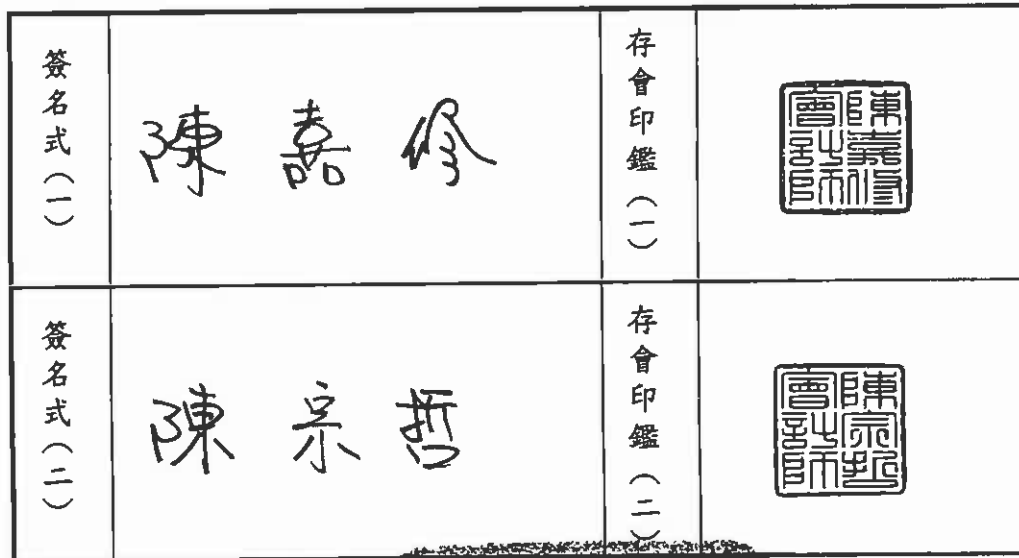 簽名式（一）
陳嘉修
存會印鑑（一）
陳嘉修會計師
簽名式（二）
陳宗哲
存會印鑑（二）
陳宗哲會計師